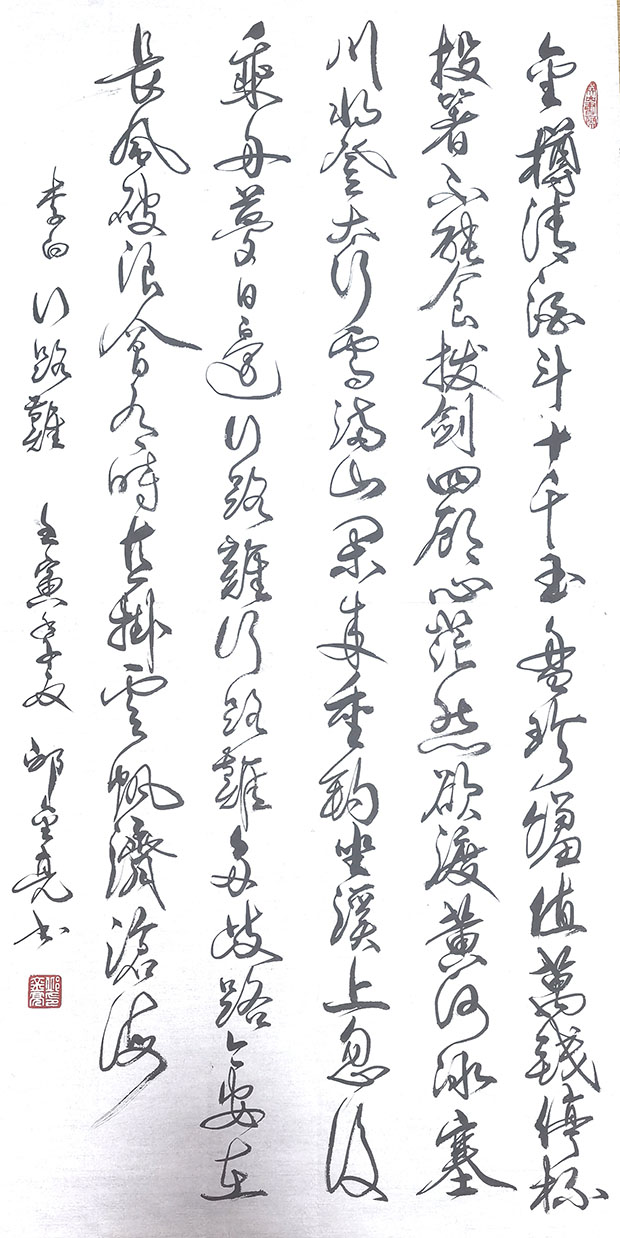 金樽清酒斗十千玉盤珍饈值萬錢停杯
投箸不能食拔劍四顧心茫然欲渡黃河冰塞
川將登太行雪滿山閑來垂釣坐溪上忽復
乘舟夢日邊行路難行路難多歧路今安在
長風破浪會有時直掛雲帆濟滄海
李白行路難 壬寅 夏 邱金亮書